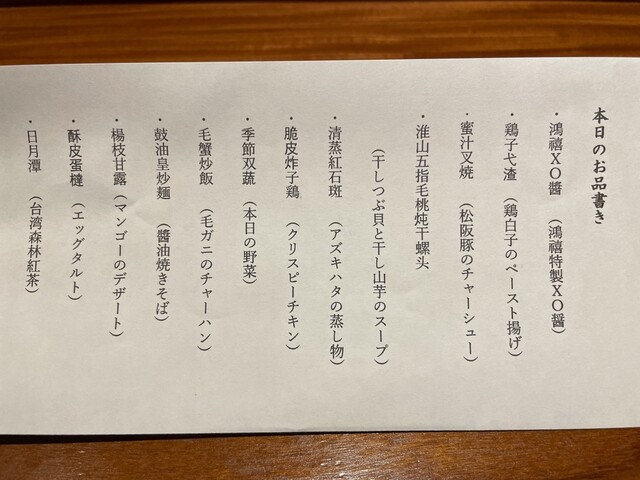 本日のお品書き
・鴻禧XO醬 (鴻禧特製XO醤)
・鶏子戈渣 (鶏白子のペースト揚げ)
・蜜汁叉焼 (松阪豚のチャーシュー)
・淮山五指毛桃炖干螺头
(干しつぶ貝と干し山芋のスープ)
・清蒸紅石斑 (アズキハタの蒸し物)
・脆皮炸子鶏 (クリスピーチキン)
・季節双蔬 (本日の野菜)
・毛蟹炒飯 (毛ガニのチャーハン)
・豉油皇炒麺 (醤油焼きそば)
・楊枝甘露 (マンゴーのデザート)
・酥皮蛋撻 (エッグタルト)
・日月潭 (台湾森林紅茶)